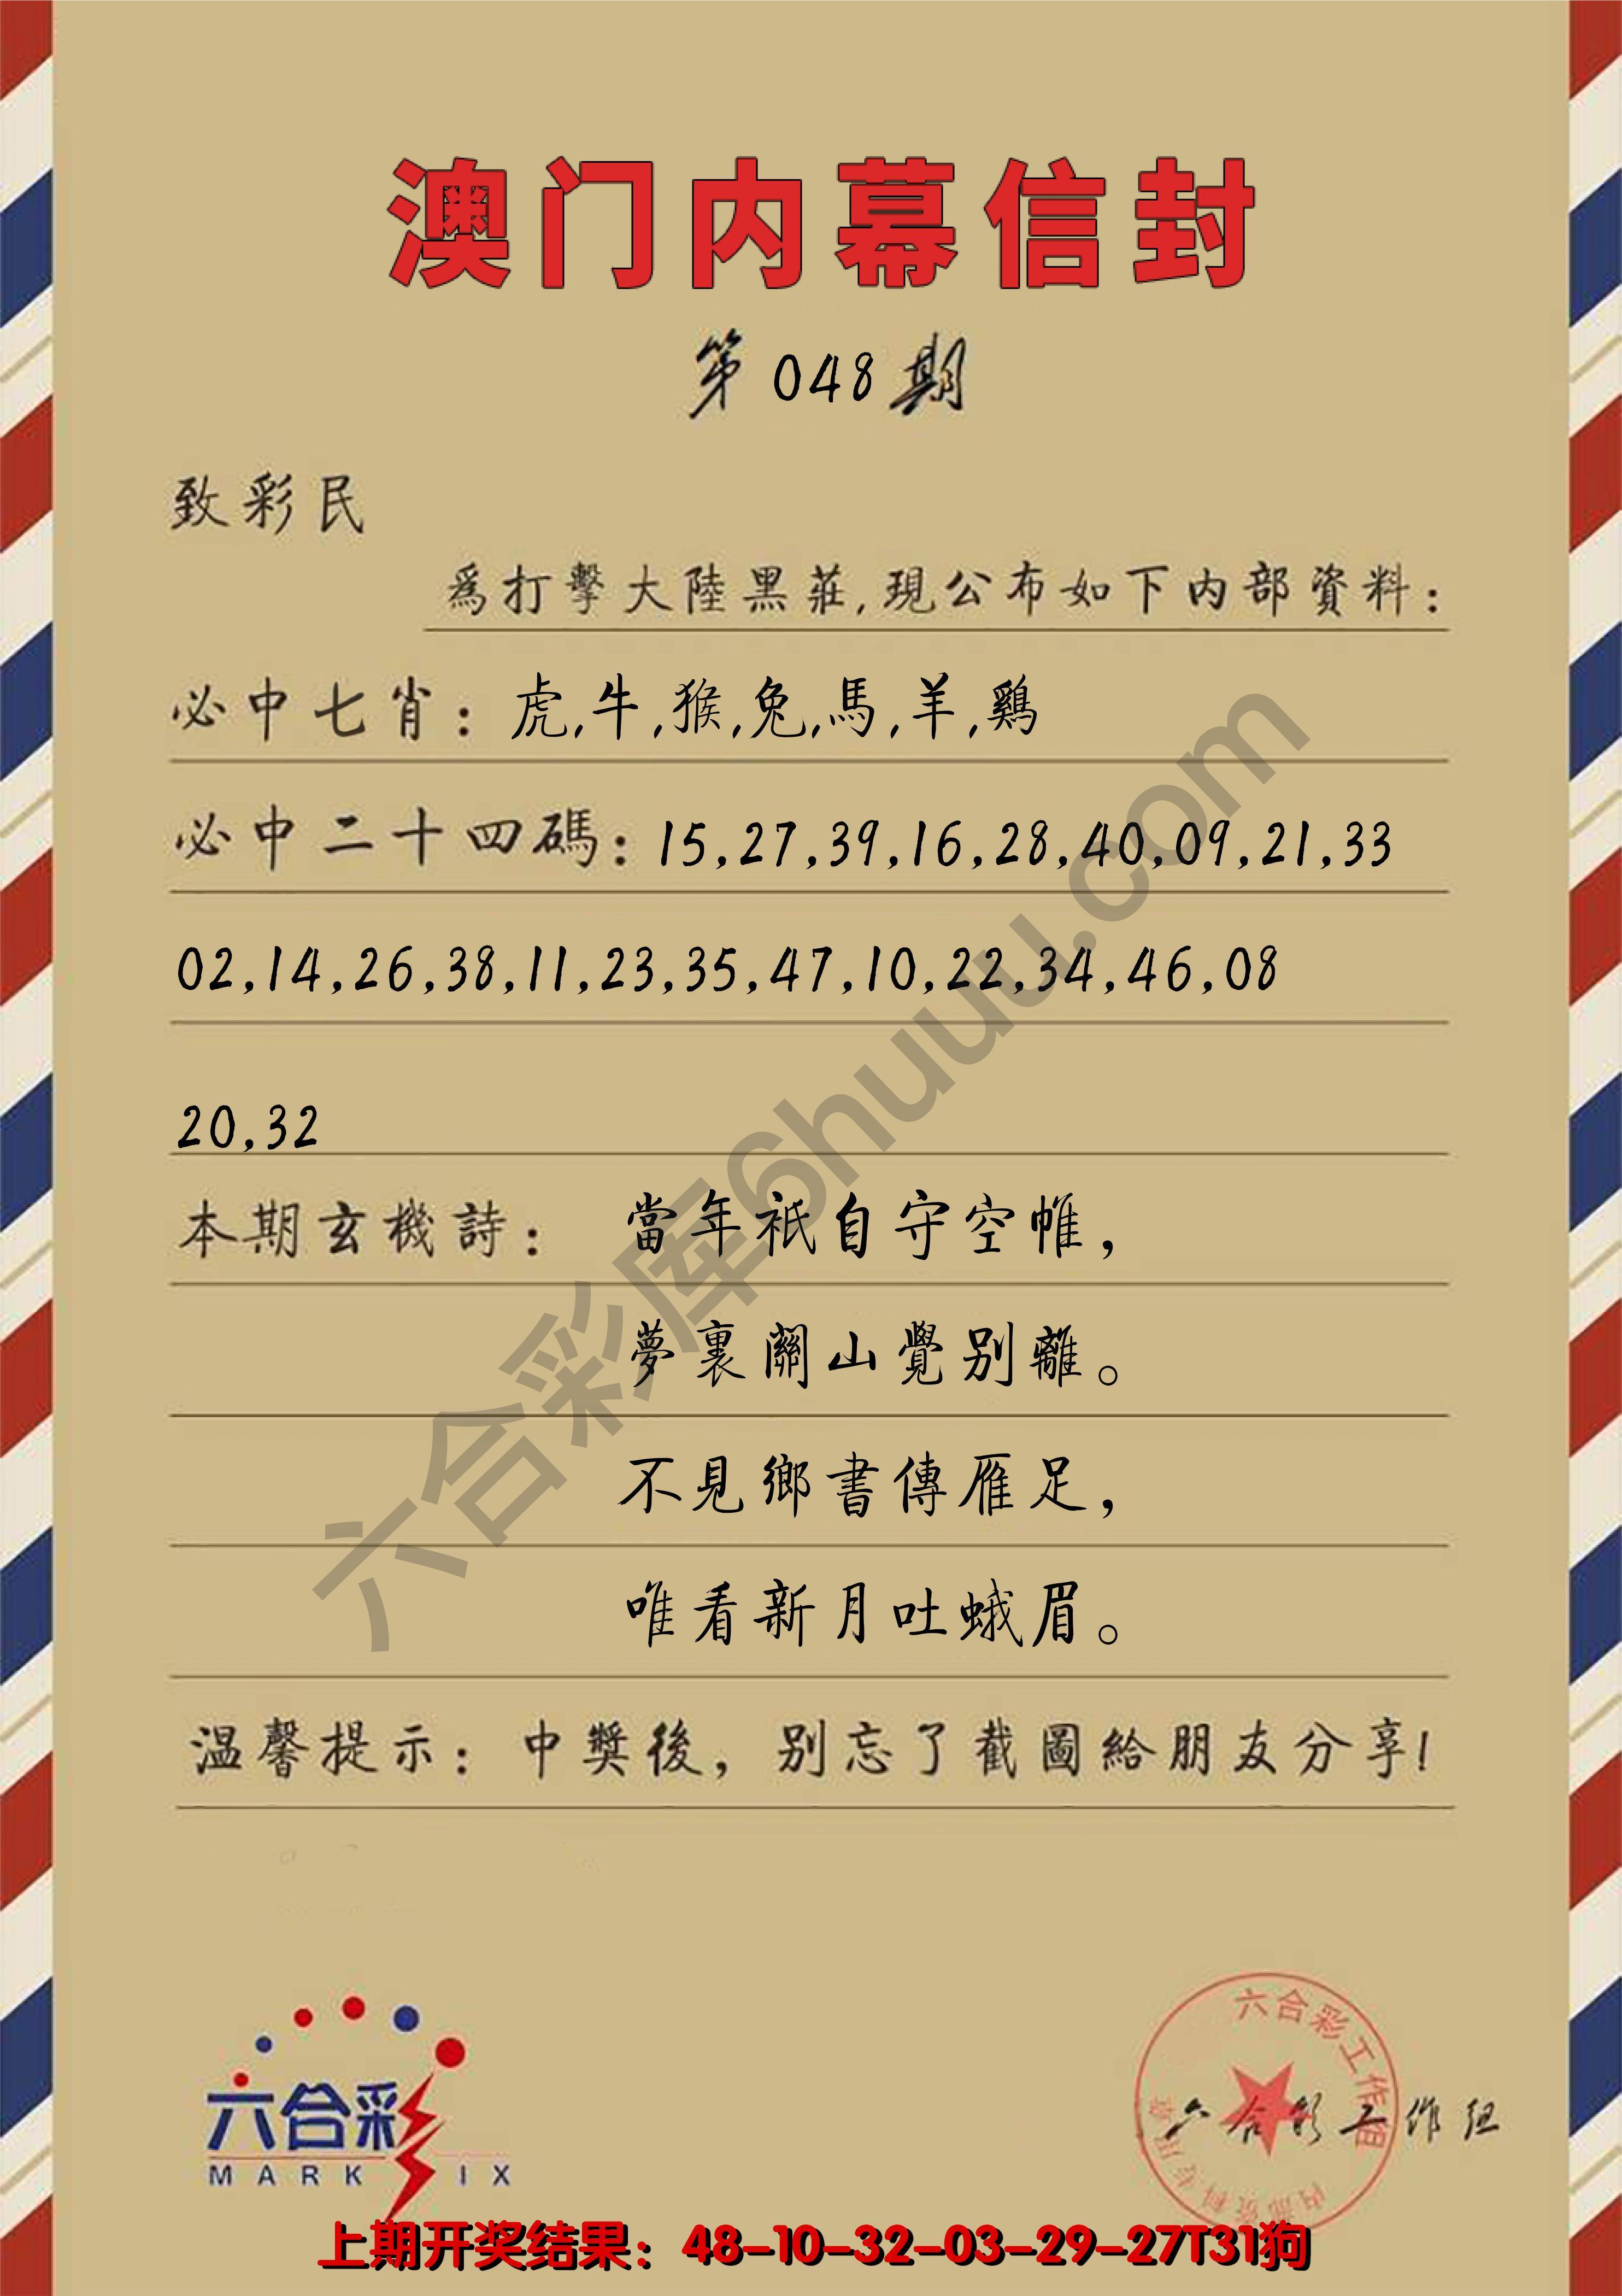 澳门内幕信封
第048期
致彩民
為打擊大陸黑莊,現公布如下内部資料:
必中七肖: 虎,牛,猴,兔,馬,羊,鷄
必中二十四碼: 15,27,39,16,28,40,09,21,33
02,14,26,38,11,23,35,47,10,22,34,46,08
20,32
本期玄機詩: 當年祇自守空帷,
夢裏關山覺别離。
不見鄉書傳雁足,
唯看新月吐蛾眉。
温馨提示: 中獎後, 别忘了截圖給朋友分享!
六合彩库6huuu.com
六合彩
MARK IX
六合彩工作组
六合彩工作组
上期开奖结果: 48-10-32-03-29-27T31狗